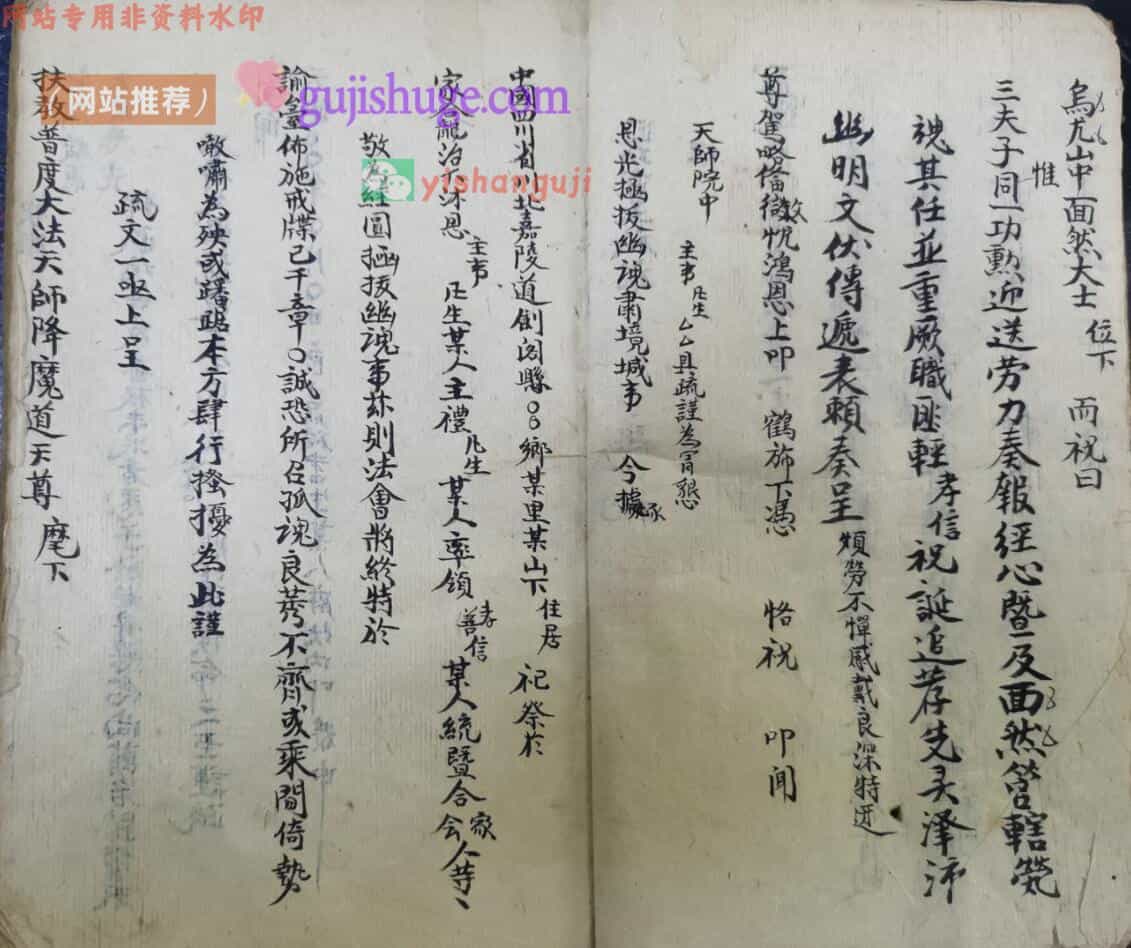 网站专用非资料水印
(网站推荐)
gujishuge.com
yishanguji
烏尤山中面然大士 位下 而祝曰
惟
三夫子同一功勲迎送劳力奏報經心暨及面然筦轄煢
魂其任並重厥職匪輕孝信祝誕追荐先灵澤沛
幽明文伏傳遞表賴奏呈頻勞不憚感戴良深特迓
尊駕略俻微忱鴻恩上叩 鶴旆下憑 恪祝 叩闻
天師院中 主事𠃔生厶厶具疏謹為肎懇
恩光拯拔幽魂肅境城事 今據
中國四川省川北嘉陵道劍阁縣〇〇鄉某里某山下住居 祀祭於
家龕治下沐恩主事生某人主禮生 某人率領孝善信某人統暨合家会人等
敬為經圓拯拔幽魂事玆則法會將終特於
諭臺佈施戒牒已千章〇誠恐所召孤魂良莠不齊或乘間倚勢
噉嘯為殃或躇踞本方肆行搔擾為此謹
疏文一亟上呈
扶教普度大法天師降魔道天尊 麾下